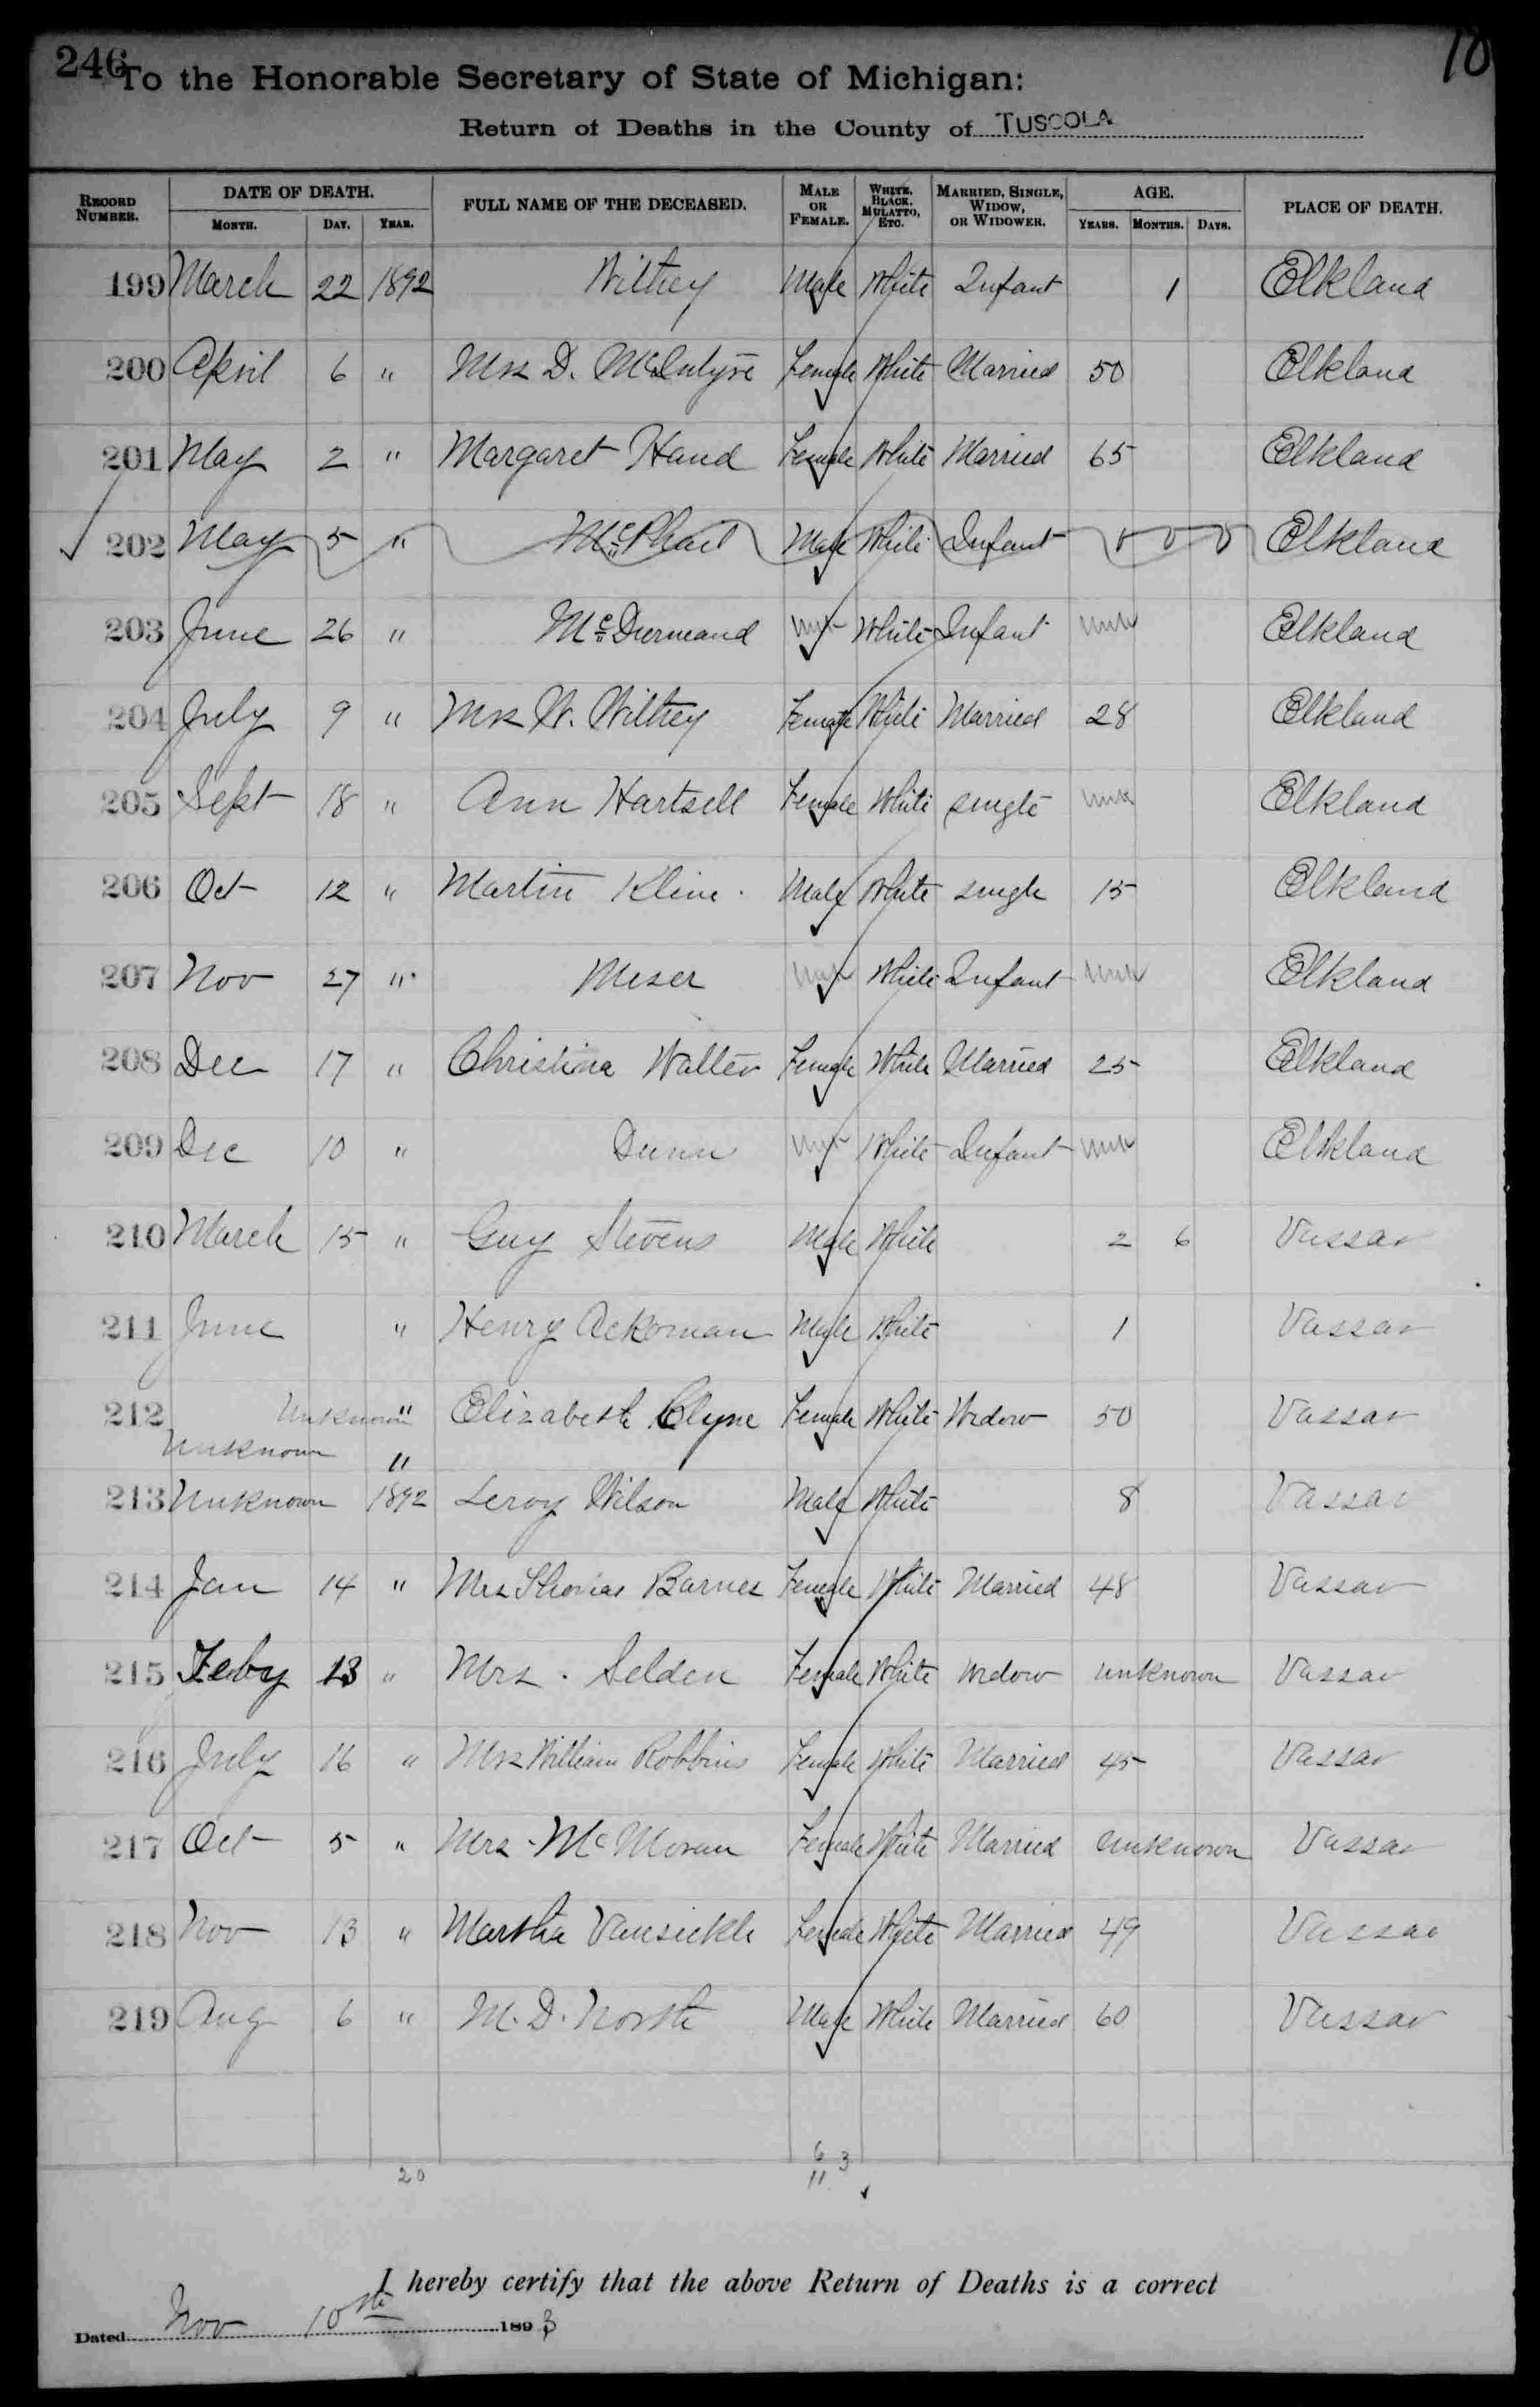 246 To the Honorable Secretary of State of Michigan: 10
Return of Deaths in the County of TUSCOLA
RECORD NUMBER. DATE OF DEATH. MONTH. DAY. YEAR. FULL NAME OF THE DECEASED. MALE OR FEMALE. WHITE, BLACK, MULATTO, ETC. MARRIED, SINGLE, WIDOW, OR WIDOWER. AGE. YEARS. MONTHS. DAYS. PLACE OF DEATH.
199 March 22 1892 Withey Male White Infant 1 Elkland
200 April 6 " Mrs D. McIntyre Female White Married 50 Elkland
201 May 2 " Margaret Hand Female White Married 65 Elkland
202 May 5 " McPhail Male White Infant 0 0 0 Elkland
203 June 26 " McDurmeand unk White Infant unk Elkland
204 July 9 " Mrs W. Withey Female White Married 28 Elkland
205 Sept 18 " Ann Hartsell Female White single unk Elkland
206 Oct 12 " Martin Kline Male White single 15 Elkland
207 Nov 27 " Meser unk White Infant unk Elkland
208 Dec 17 " Christina Walter Female White Married 25 Elkland
209 Dec 10 " Dunn unk White Infant unk Elkland
210 March 15 " Guy Stevens Male White 2 6 Vassar
211 June " Henry Ackoman Male White 1 Vassar
212 Unknown " Elizabeth Clyne Female White Widow 50 Vassar
Unknown "
213 Unknown 1892 Leroy Wilson Male White 8 Vassar
214 Jan 14 " Mrs Thomas Barnes Female White Married 48 Vassar
215 Feby 13 " Mrs. Selden Female White Widow unknown Vassar
216 July 16 " Mrs William Robbins Female White Married 45 Vassar
217 Oct 5 " Mrs. McMoran Female White Married unknown Vassar
218 Nov 13 " Martha Vansickle Female White Married 49 Vassar
219 Aug 6 " M. D. North Male White Married 60 Vassar
6 3
20 11
I hereby certify that the above Return of Deaths is a correct
Dated Nov 10th 1893